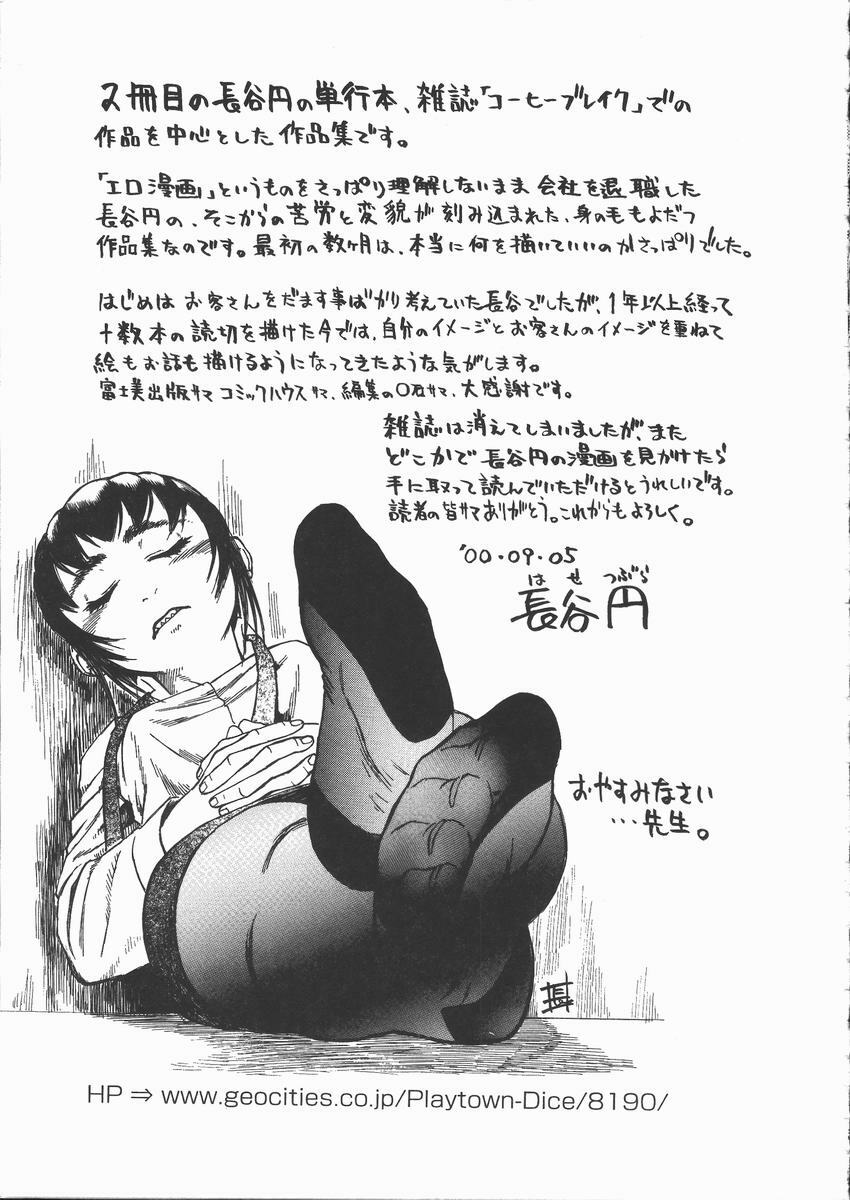 2冊目の長谷円の単行本、雑誌「コーヒーブレイク」での
作品を中心とした作品集です。
「エロ漫画」というものをさっぱり理解しないまま会社を退職した
長谷円の、そこからの苦労と変貌が刻み込まれた、身の毛もよだつ
作品集なのです。最初の数ヶ月は、本当に何を描いていいのかさっぱりでした。
はじめはお客さんをだます事ばかり考えていた長谷でしたが、1年以上経って
十数本の読切を描けた今では、自分のイメージとお客さんのイメージを重ねて
絵もお話も描けるようになってきたような気がします。
富士美出版サマ コミックハウスサマ、編集の〇石サマ、大感謝です。
雑誌は消えてしまいましたが、また
どこかで長谷円の漫画を見かけたら
手に取って読んでいただけるとうれしいです。
読者の皆サマありがとう。これからもよろしく。
'00.09.05
はせ つぶら
長谷円
おやすみなさい
…先生。
HP ⇒ www.geocities.co.jp/Playtown-Dice/8190/